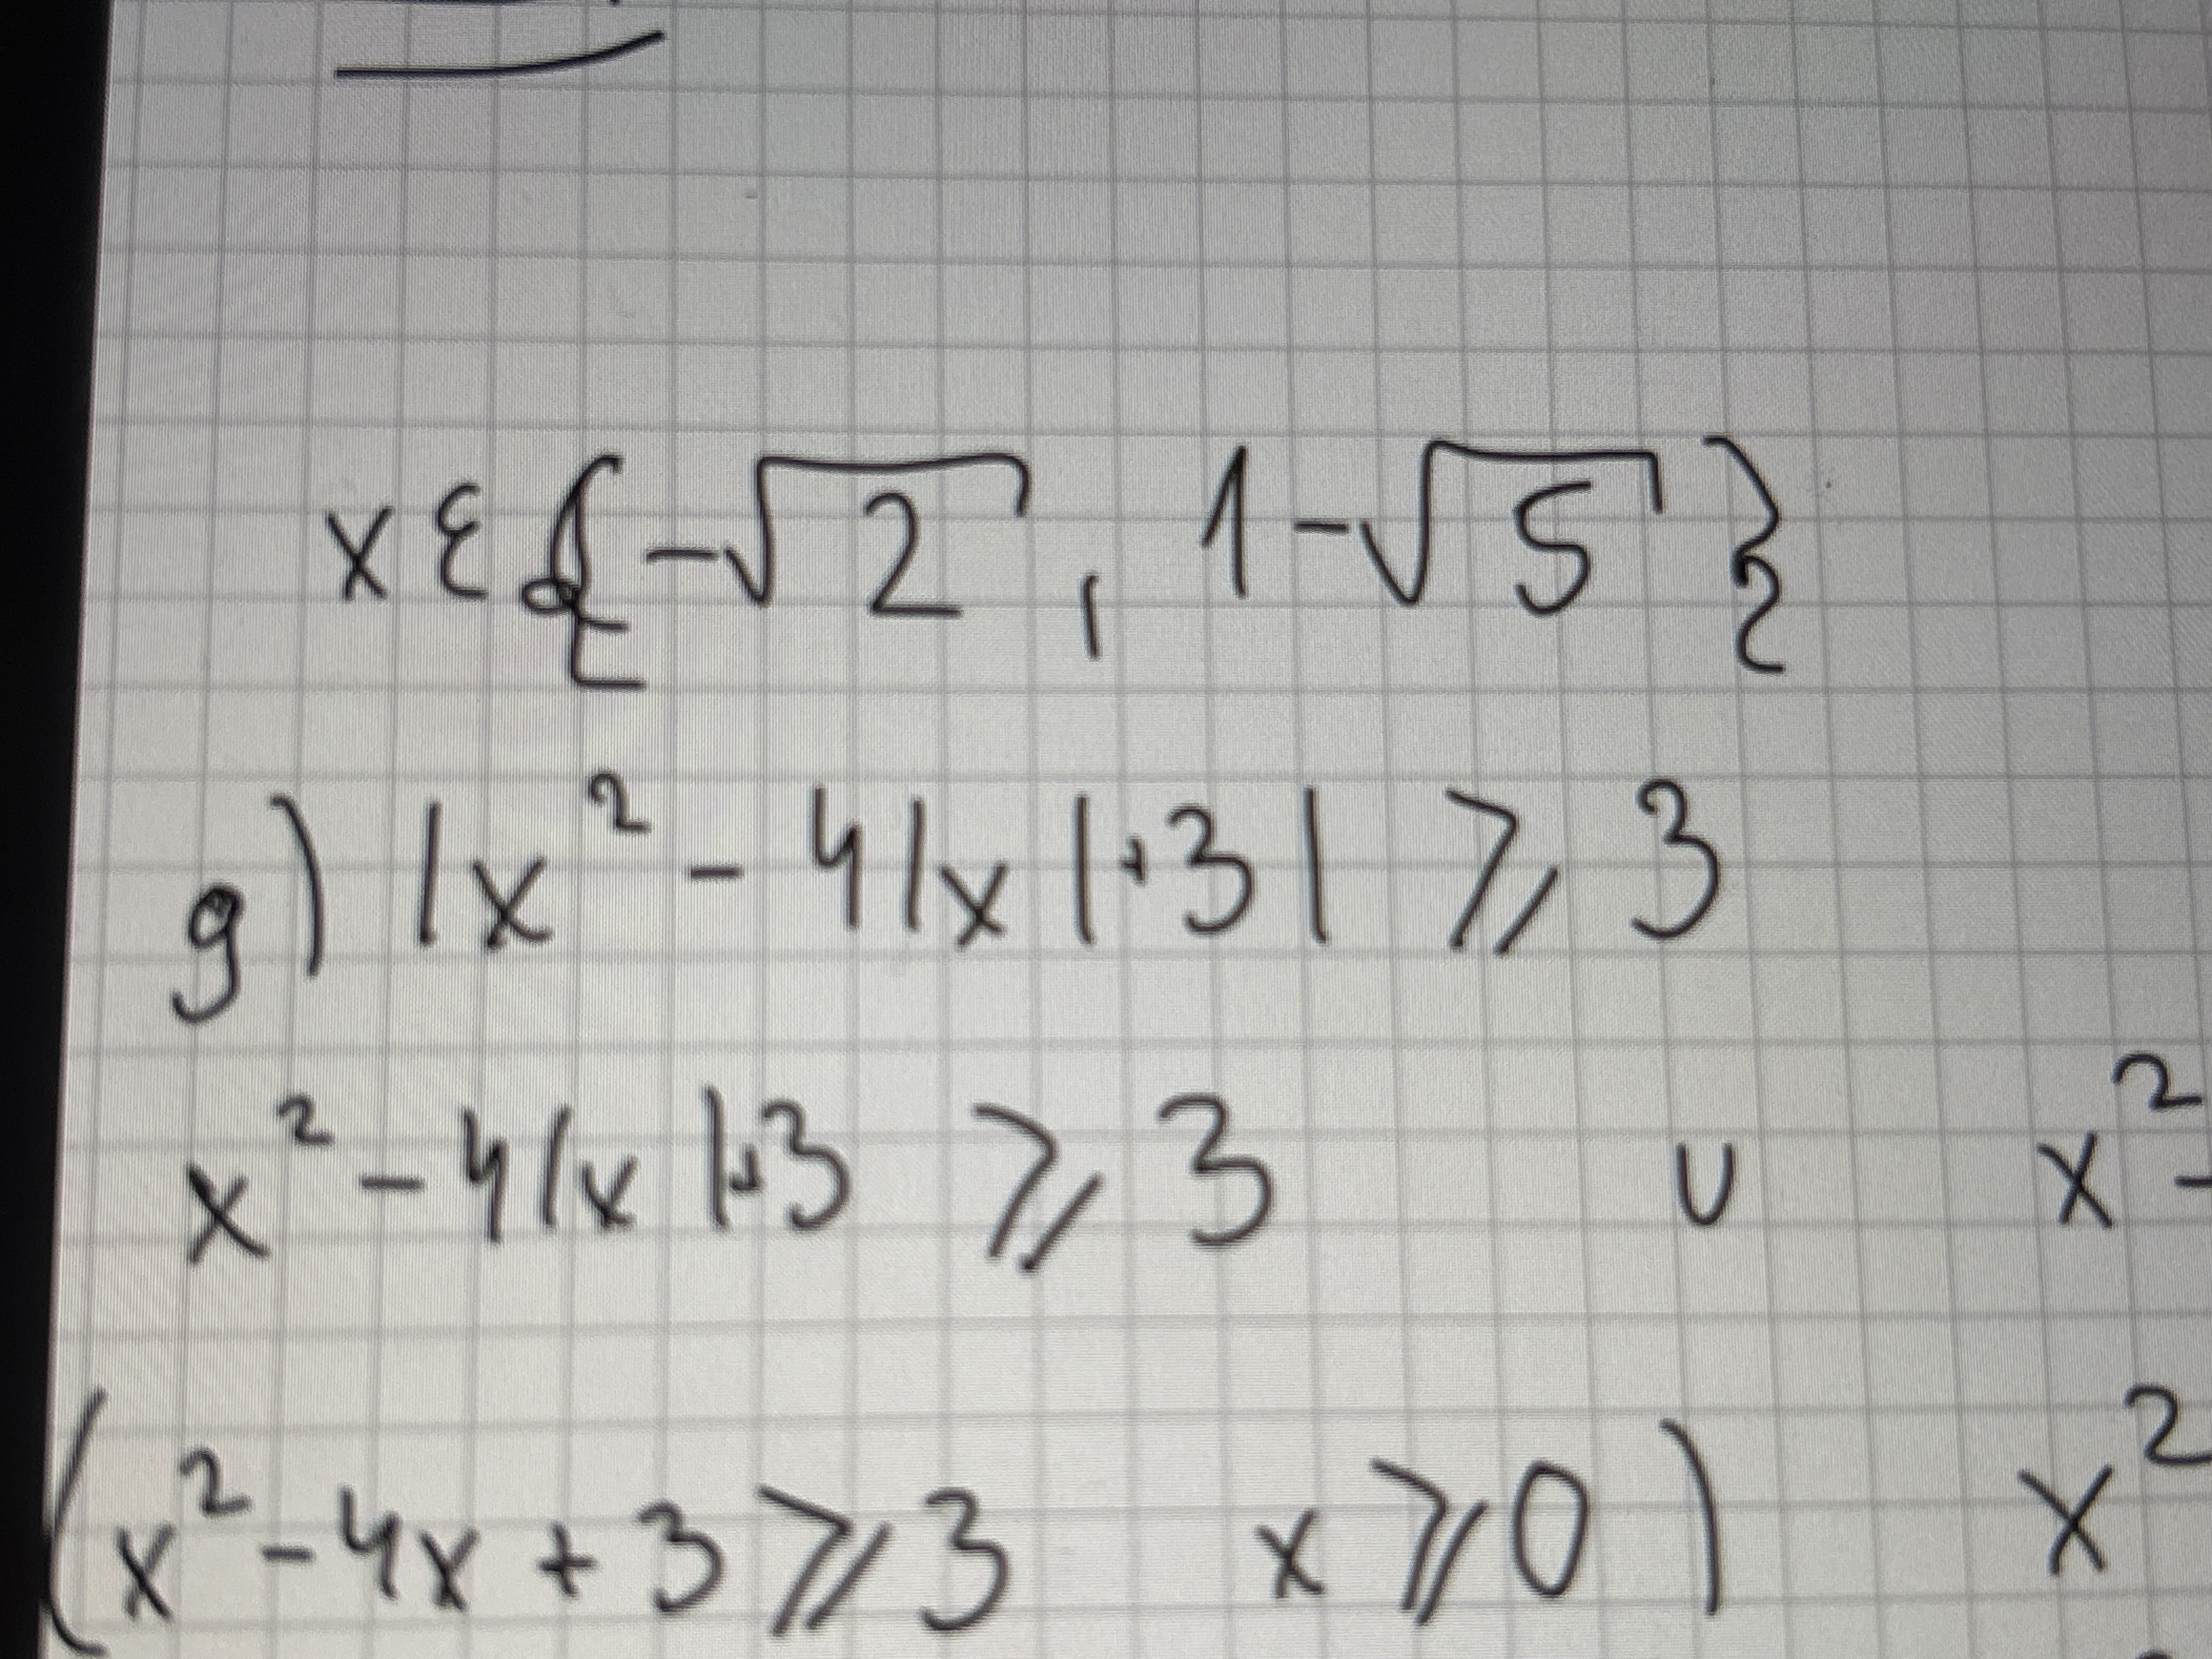 x ∈ {-√2, 1-√5}
g) |x² - 4|x|+3| ⩾ 3
x² - 4|x|+3 ⩾ 3 ∪ x² -
(x² - 4x + 3 ⩾ 3 x ⩾ 0) x²